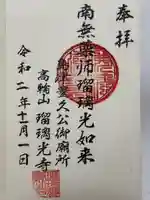 奉拝
南無薬師瑠璃光如来
島津豊久公御廟所
高輪山 瑠璃光寺
令和二年十一月一日